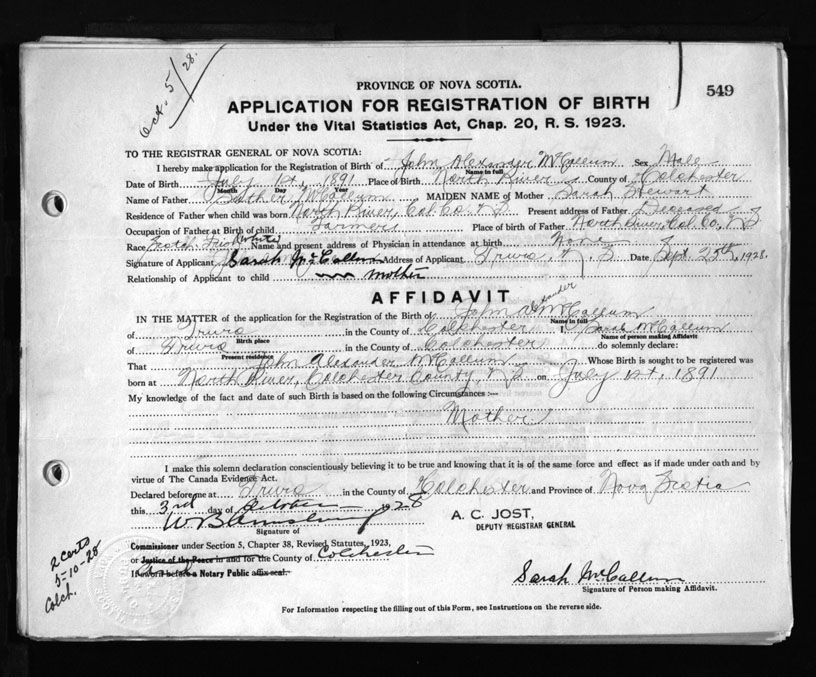 Oct. 5/28.
549
PROVINCE OF NOVA SCOTIA.
APPLICATION FOR REGISTRATION OF BIRTH
Under the Vital Statistics Act, Chap. 20, R. S. 1923.
TO THE REGISTRAR GENERAL OF NOVA SCOTIA:
I hereby make application for the Registration of Birth of John Alexander McCallum Sex Male
Name in full
Date of Birth July 1st, 1891 Place of Birth North River County of Colchester
Month Day Year
Name of Father McCallum MAIDEN NAME of Mother Sarah Stewart
Residence of Father when child was born North River, Col. Co. N S Present address of Father Deceased
Occupation of Father at Birth of child Farmer Place of birth of Father North River, Col. Co, N S
Race Scotch Irish (White) Name and present address of Physician in attendance at birth None
Signature of Applicant Sarah McCallum Address of Applicant Truro, N. S Date Sept. 25th, 1928.
Relationship of Applicant to child mother
AFFIDAVIT
IN THE MATTER of the application for the Registration of the Birth of John Alexander McCallum
Name in full
of Truro in the County of Colchester I Sarah McCallum
Birth place Name of person making Affidavit
of Truro in the County of Colchester do solemnly declare:
Present residence
That John Alexander McCallum Whose Birth is sought to be registered was
born at North River, Colchester County, N S on July 1st, 1891
My knowledge of the fact and date of such Birth is based on the following Circumstances :—
Mother
I make this solemn declaration conscientiously believing it to be true and knowing that it is of the same force and effect as if made under oath and by
virtue of The Canada Evidence Act.
Declared before me at Truro in the County of Colchester and Province of Nova Scotia
this 3rd day of October 1928
A. C. JOST,
DEPUTY REGISTRAR GENERAL
Signature of
Commissioner under Section 5, Chapter 38, Revised Statutes, 1923,
or Justice of the Peace in and for the County of Colchester
If sworn before a Notary Public affix seal.
2 Certs
5-10-28
Colch.
Sarah McCallum
Signature of Person making Affidavit.
For Information respecting the filling out of this Form, see Instructions on the reverse side.